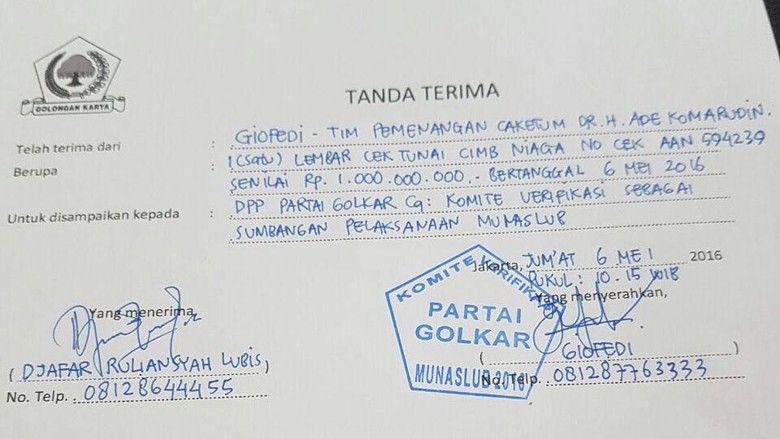 GOLONGAN KARYA
TANDA TERIMA
Telah terima dari : GIOFEDI - TIM PEMENANGAN CAKETUM DR. H. ADE KOMARUDIN.
Berupa : 1 (SATU) LEMBAR CEK TUNAI CIMB NIAGA NO CEK AAN 594239
SENILAI Rp. 1.000.000.000,- BERTANGGAL 6 MEI 2016
Untuk disampaikan kepada : DPP PARTAI GOLKAR Cq: KOMITE VERIFIKASI SEBAGAI
SUMBANGAN PELAKSANAAN MUNASLUB
Jakarta, JUM'AT 6 MEI 2016
PUKUL : 10.15 WIB
Yang menerima,
Yang menyerahkan,
KOMITE VERIFIKASI
PARTAI
GOLKAR
MUNASLUB 2016
( DJAFAR RULIANSYAH LUBIS )
( GIOFEDI )
No. Telp. 08128644455
No. Telp. 081287763333